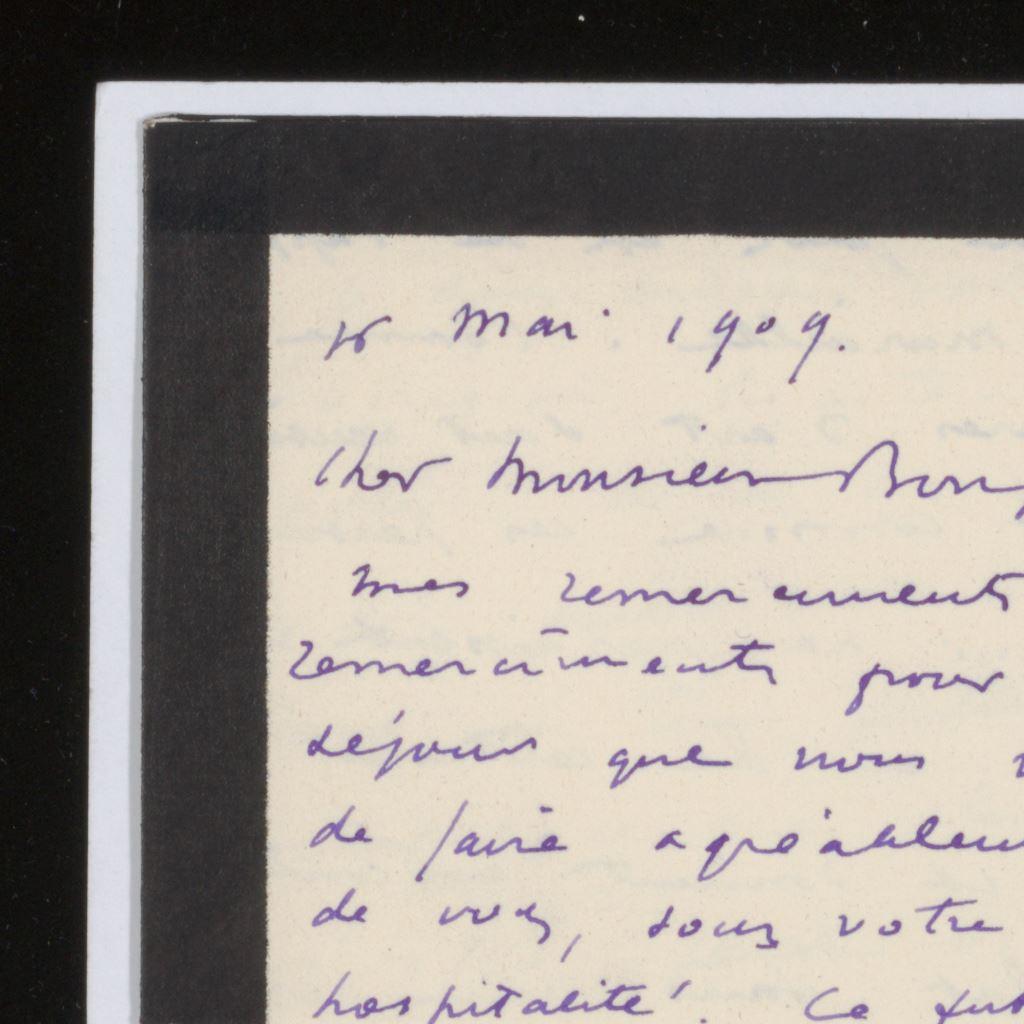 Mai 1909.
Cher Monsieur
mes remerciements
remerciements pour
séjour que nous
de faire agréablem
de vous, sous votre
hospitalité! Ce fut